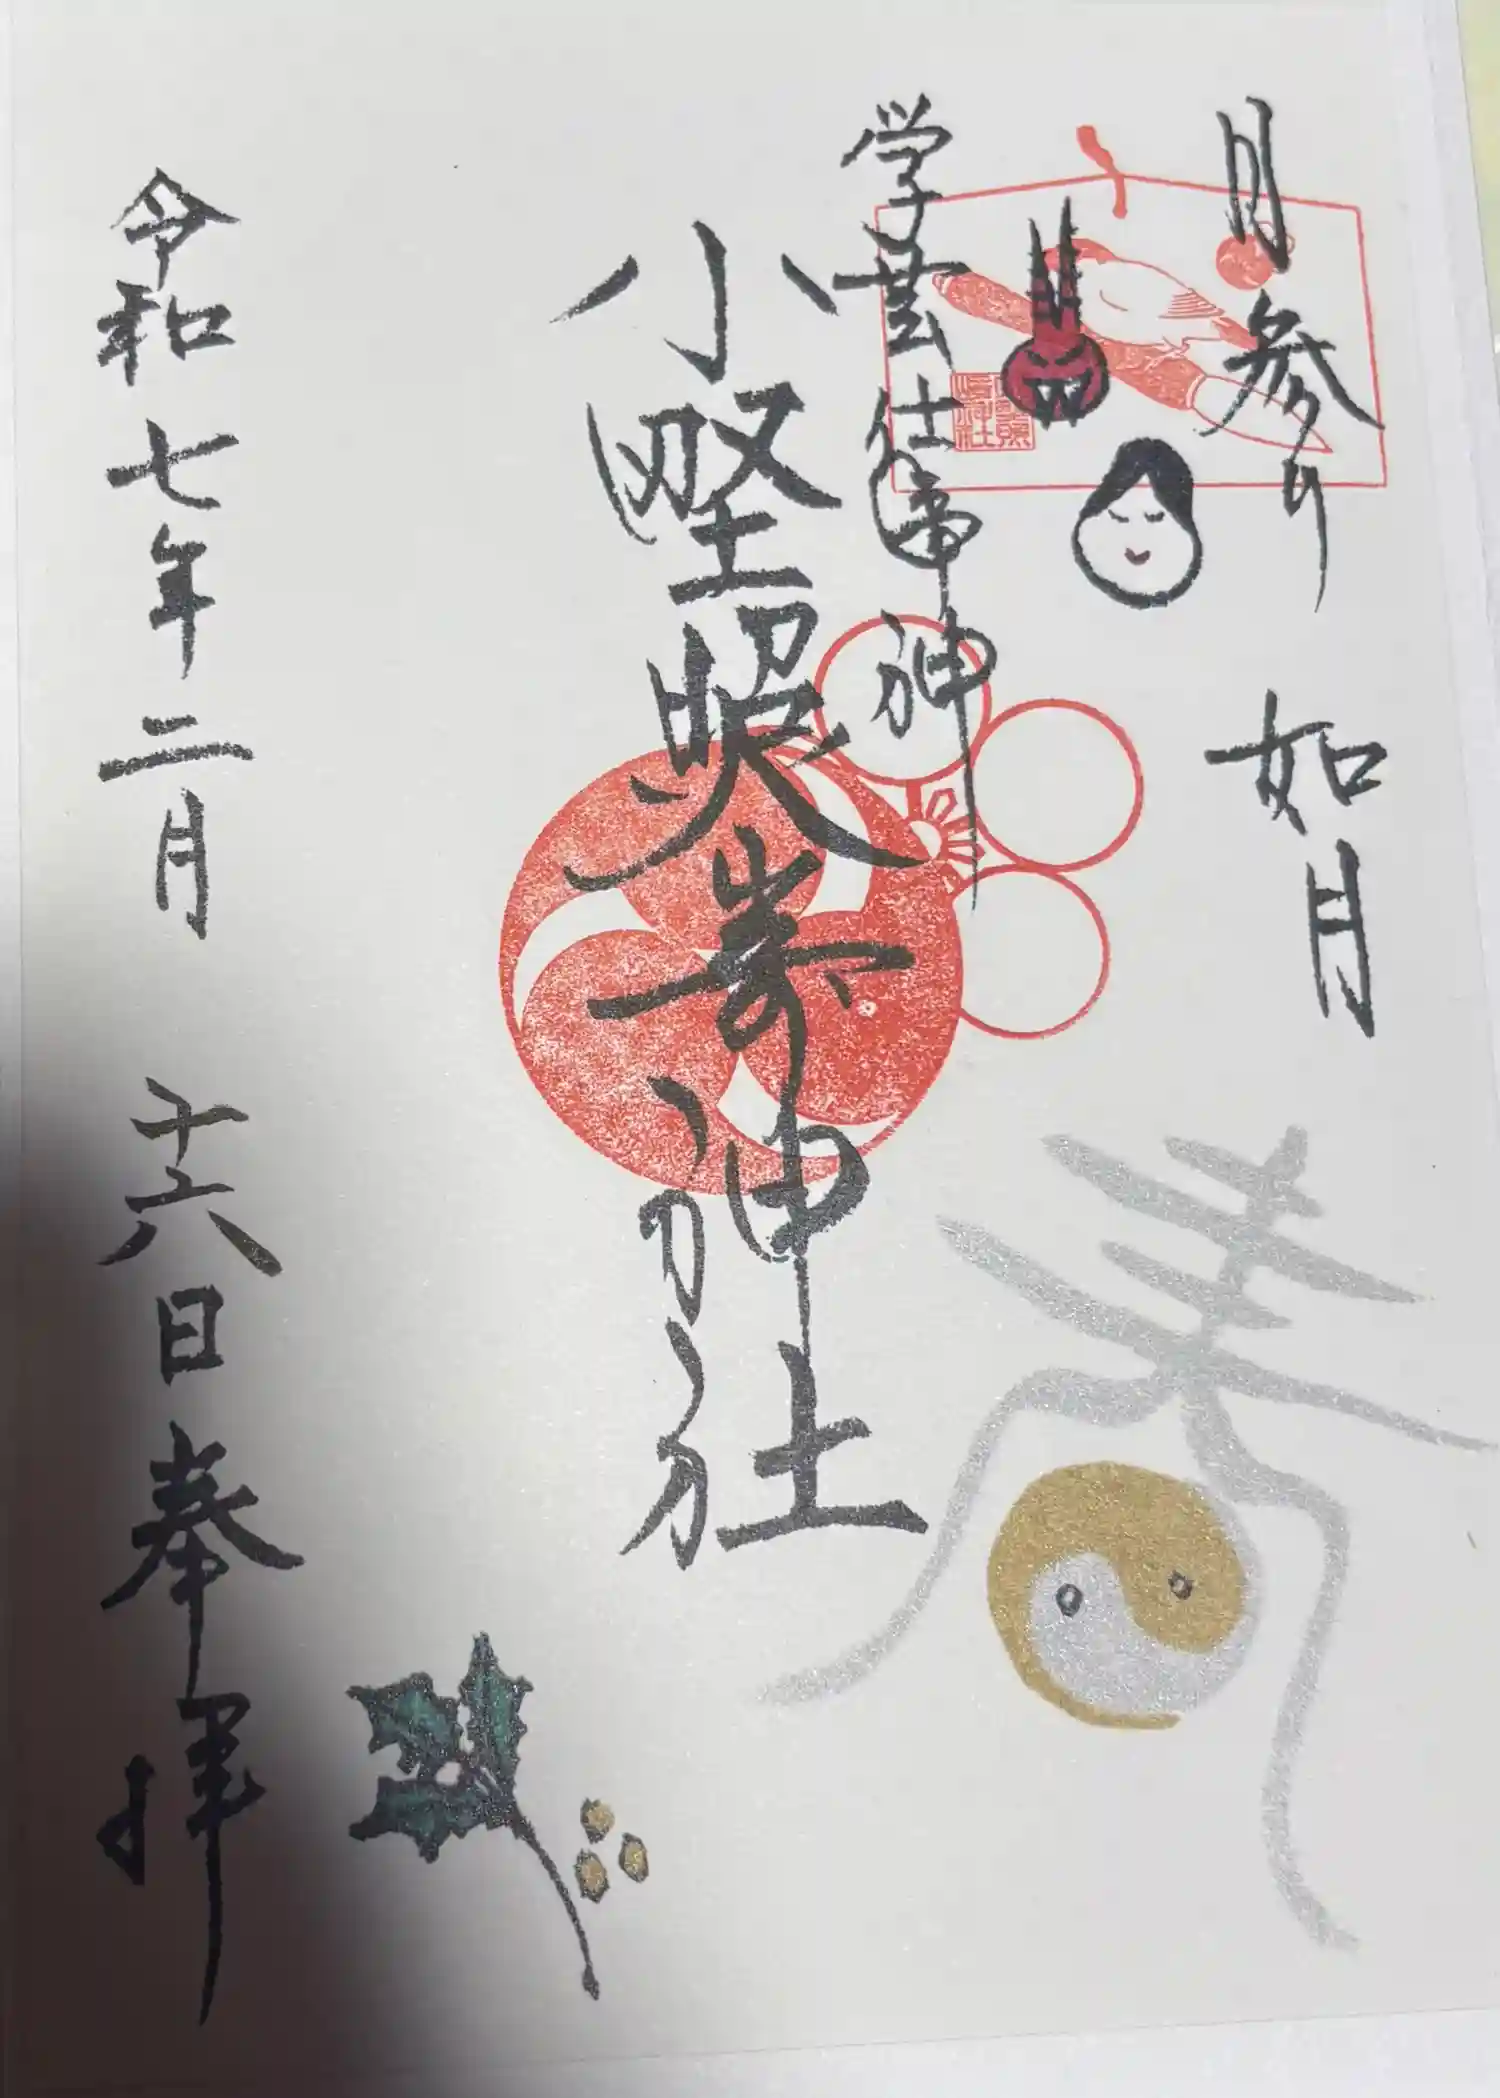 月参り 如月
春
学芸仕事神
小野照崎神社
令和七年二月十六日奉拝